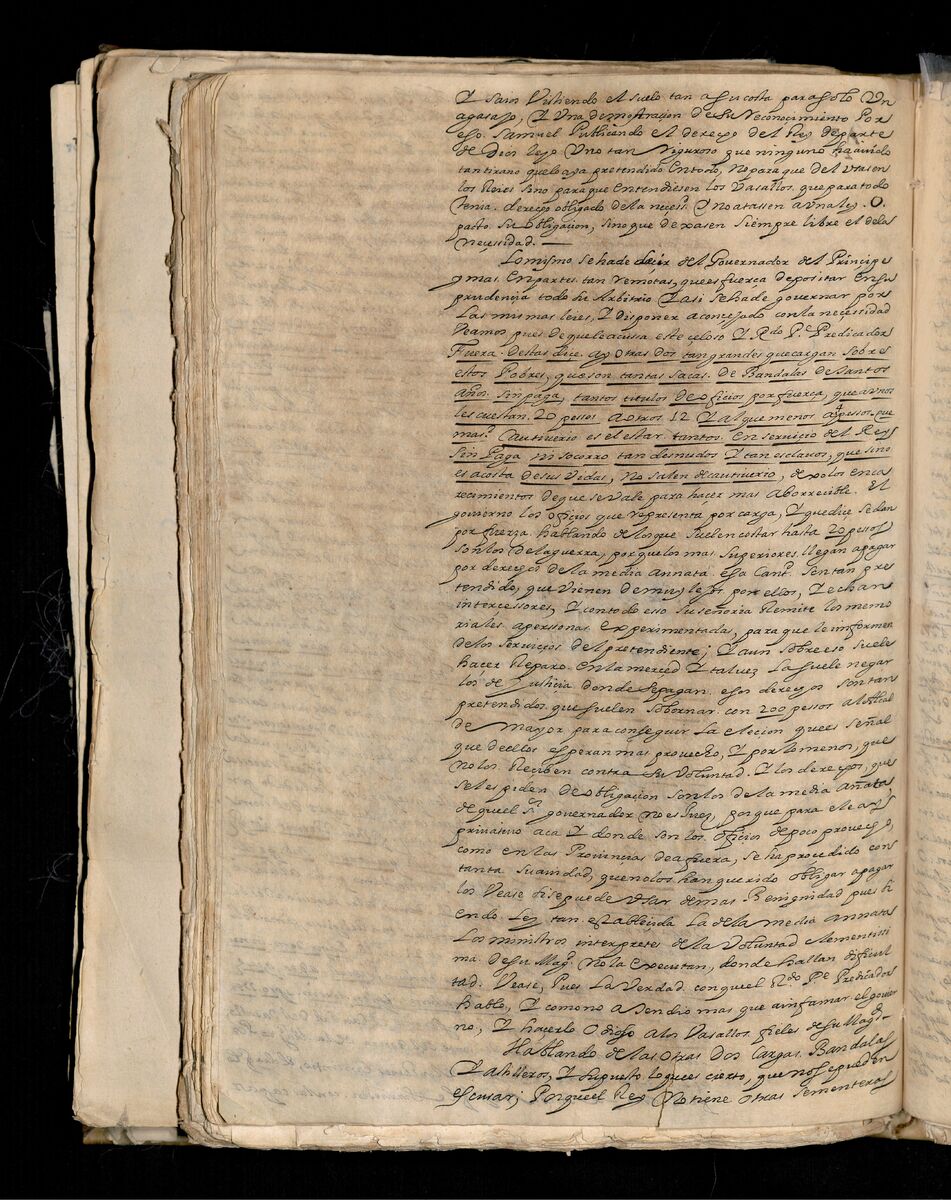 Y sain Vistiendo el suelo tan a su costa para solo Un
agasajo, Y Una demostracion de su Reconocimiento Por
esso. Samuel Publicando el derecho del Rey de parte
de Dios leyo Uno tan Riguroso que ninguno ha avido
tan tirano que lo aya pretendido en todo, no para que del Usasen
los Reies sino para que entendiesen los Vasallos, que para todo
tenia derecho obligado de la neces.d Y no atassen a Una ley. O.
pacto. su obligacion, sino que dexasen siempre libre el de la
Necesidad. —
Lo mismo se ha de decir del Governador del Principe
y mas. En partes tan remotas, que es fuerca depositar en su
prudencia todo su Arbitrio Y asi se ha de governar por
Las mismas leies, Y disponer aconsejado con la necessidad
Veamos, pues de que le acussa este celoso Y R.do P.e Predicador
Fuera. Destas dice. ay Otras dos tan grandes que cargan sobre
estos Pobres, que son tantas sacas. De Bandalas de tantos
años. sin paga, tantos titulos de oficios por fuerça, que a Unos
les cuestan. 20 pessos a otros. 12 Y al que menos pessos. que
mas. Cautiverio es el estar tantos. En servicio del Rey
Sin Paga ni socorro tan desnudos Y tan esclavos, que sino
es a costa de sus Vidas, No salen de cautiverio, dexo los enca
recimientos de que se vale para hacer mas aborrecible. El
govierno los oficios que representa por carga, Y que dice se dan
por fuerza. hablando de los que suelen costar hasta 20 pessos
son los de la guerra, porque los mas superiores. llegan a pagar
por derechos de la media annata essa Cant.d son tan pre
tendido, que vienen de muy lejos por ellos, Y echan
intercessores, Y con todo esso su señoria Remite los memo
riales. a perssonas experimentadas, para que le informen
de los servicios del pretendiente; Y aun sobre eso suele
hacer Reparo. En la merced Y tal vez la suele negar
los de Justicia donde se pagan. esos derechos son tan
pretendidos que suelen sobornar. con 200 pessos al Alcal
de Mayor para conseguir la elecion que es señal
que de ellos esperan mas provecho, Y por lo menos, que
no los. Reciben contra su Voluntad. Y los derechos, que
se les piden de obligacion son los de la media añata,
de que el s.r governador no es Juez, porque para ello ay
privativo aca Y donde son los oficios de poco provecho,
como en las Provincias de afuera, se ha procedido con
tanta suavidad, que no los han querido obligar a pagar
los Vease si se puede Usar de mas Benignidad pues si
endo. Ley tan establecida la de la media annatas
Los ministros interpretes de la Voluntad clementissi
ma. de su Mag.d no la executan, donde hallan dificul
tad. Vease, Pues la Verdad. con que el R.do P.e Predicador
hablo, Y como no atendio mas que a infamar el govier
no, Y hacerlo Odioso a los Vasallos. fieles de su Mag.d —
Hablando de las Otras Dos Cargas. Bandalas
Y astilleros, Y supuesto lo que es cierto, que no se pueden
escusar; Porque el Rey No tiene otras sementeras